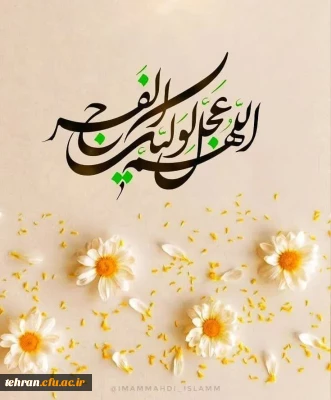 اللهم عجل لولیک الفرج
@IMAMMAHDI_ISLAMM
tehran.cfu.ac.ir